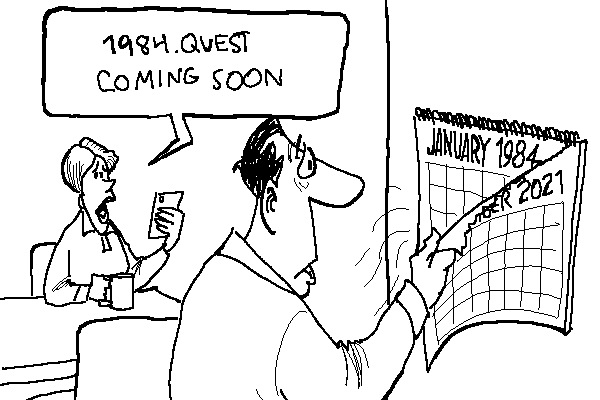 1984.QUEST
COMING SOON
JANUARY 1984
BER 2021